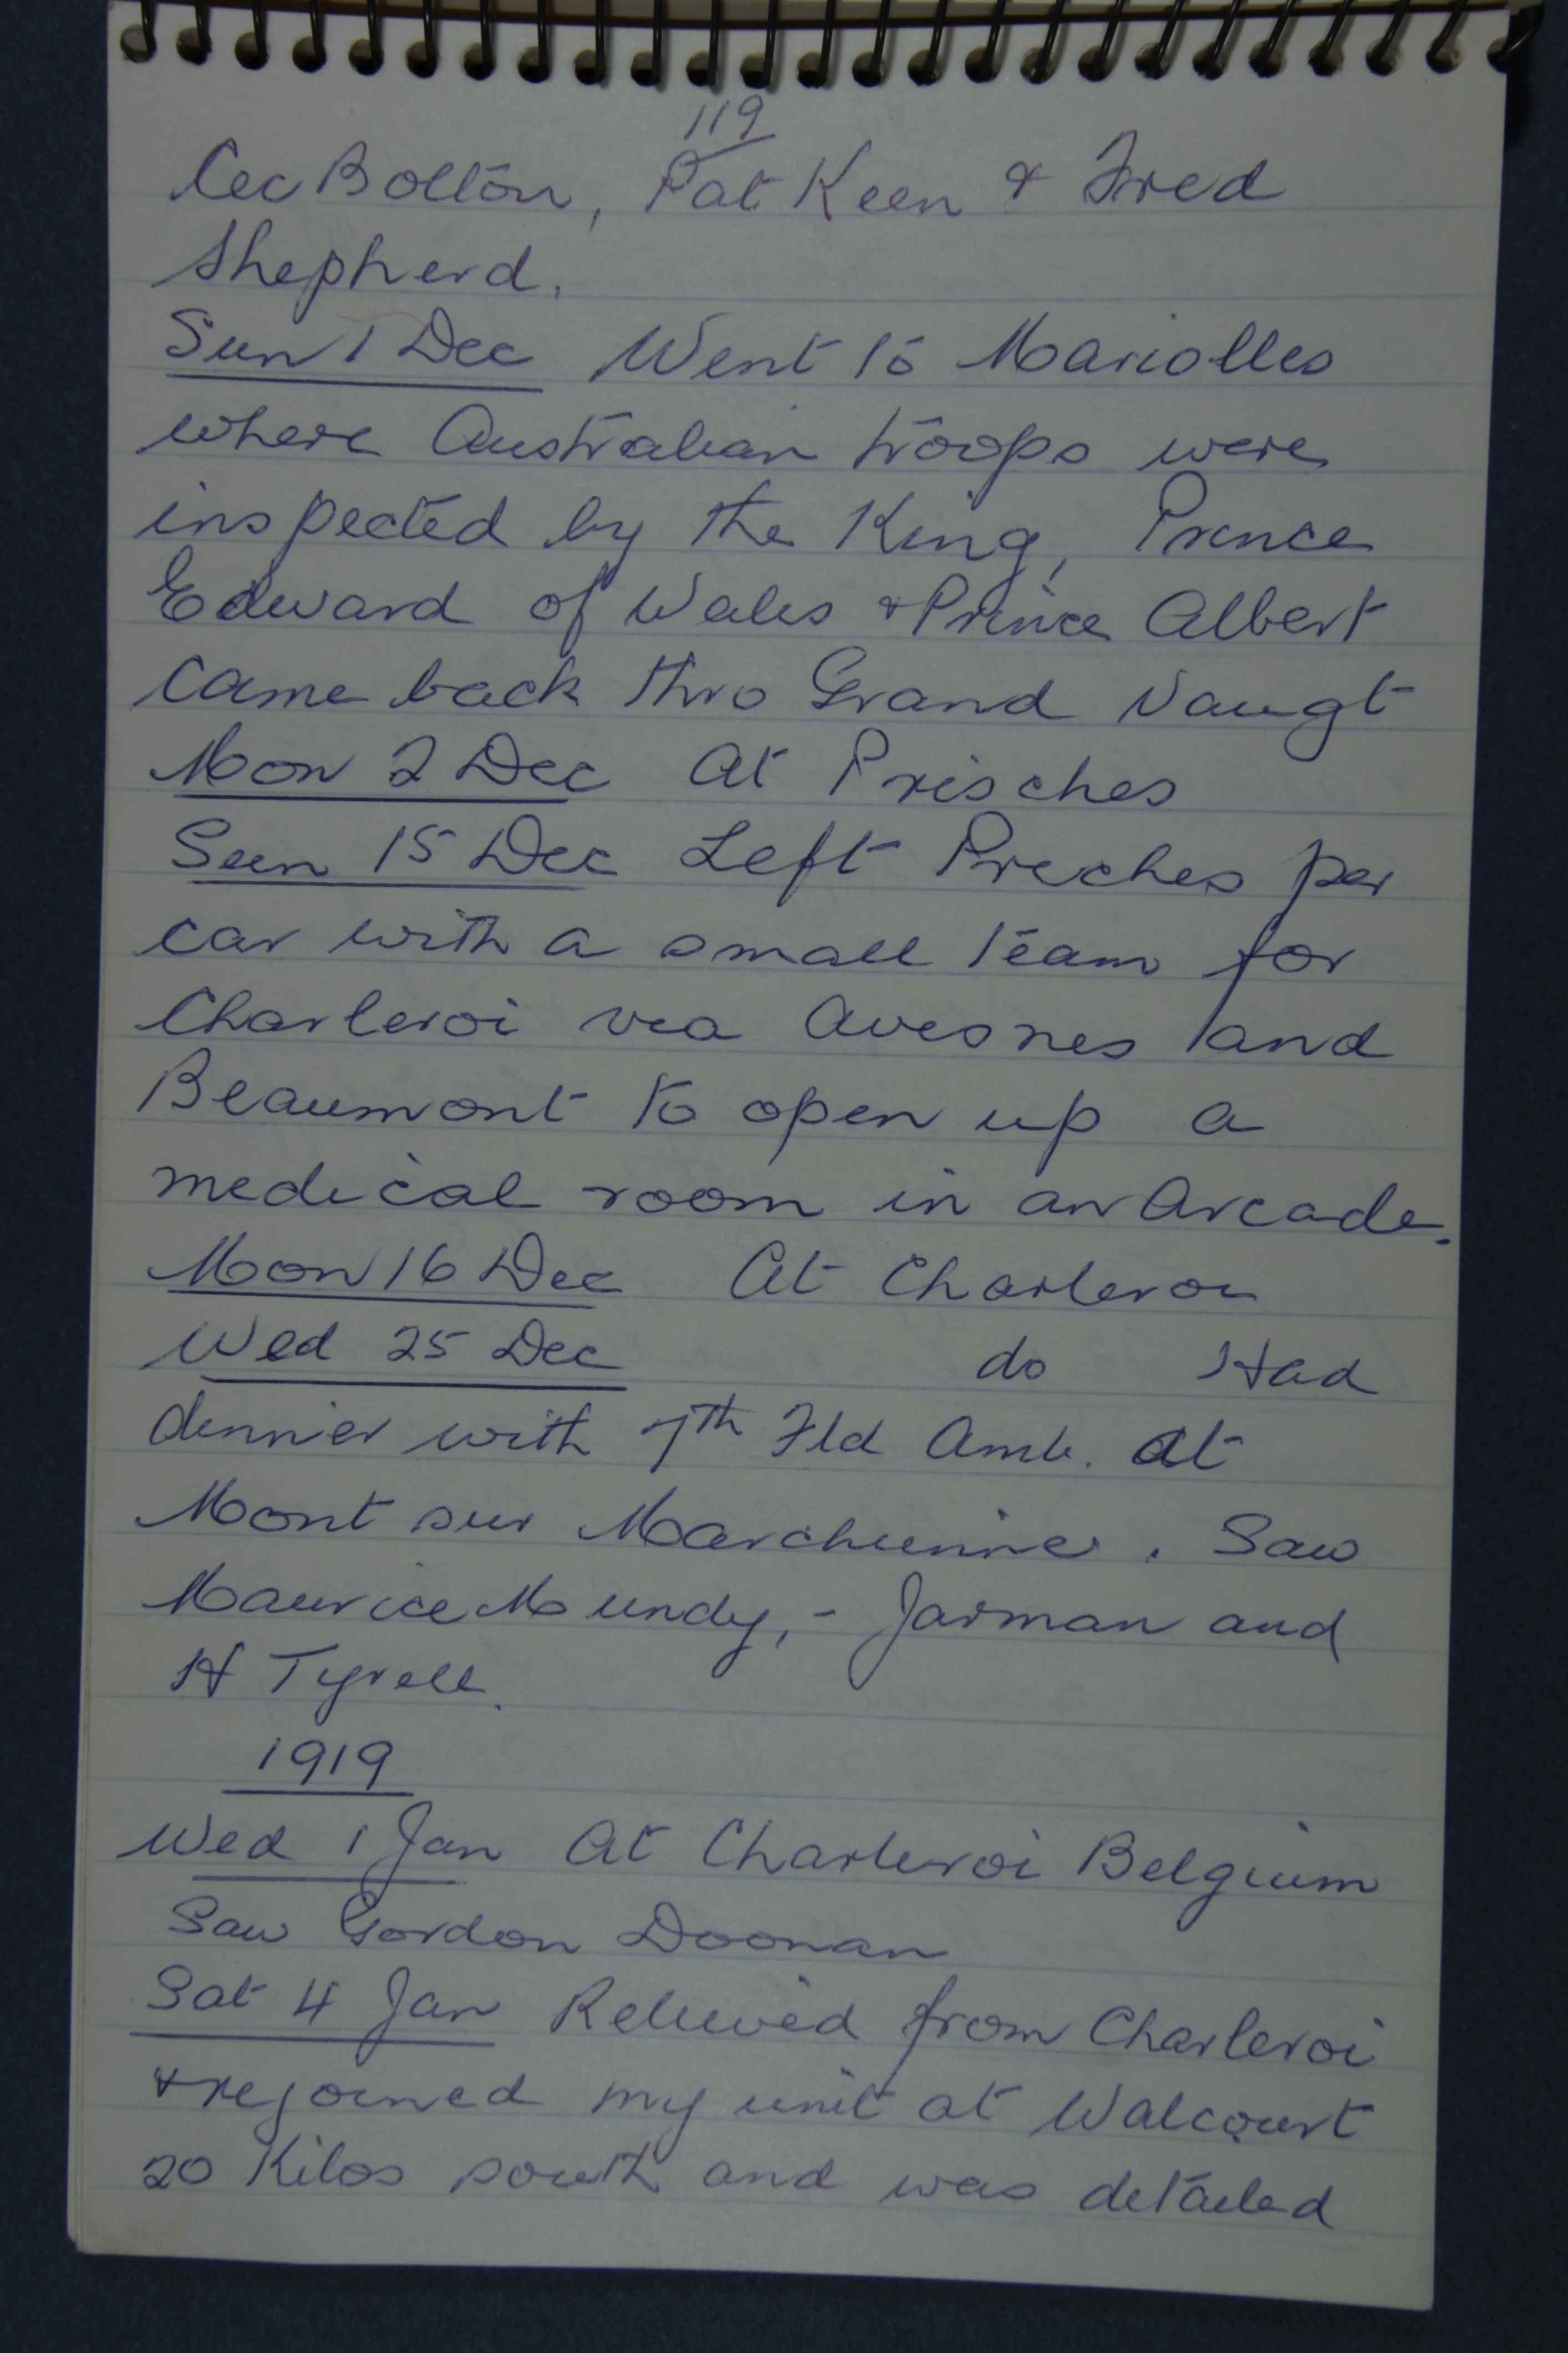 119
Cec Bolton, Pat Keen & Fred
Shepherd.
Sun 1 Dec Went to Mariolles
where Australian troops were
inspected by the King, Prince
Edward of Wales & Prince Albert
came back thro Grand Vaugt
Mon 2 Dec At Prisches
Sun 15 Dec Left Preches per
car with a small team for
Charleroi via Avesnes and
Beaumont to open up a
medical room in an Arcade.
Mon 16 Dec At Charleroi
Wed 25 Dec do Had
dinner with 7th Fld Amb. at
Mont sur Marchienne. Saw
Maurice Mundy, - Jarman and
H Tyrell.
1919
Wed 1 Jan At Charleroi Belgium
Saw Gordon Doonan
Sat 4 Jan Relieved from Charleroi
& rejoined my unit at Walcourt
20 Kilos south and was detailed